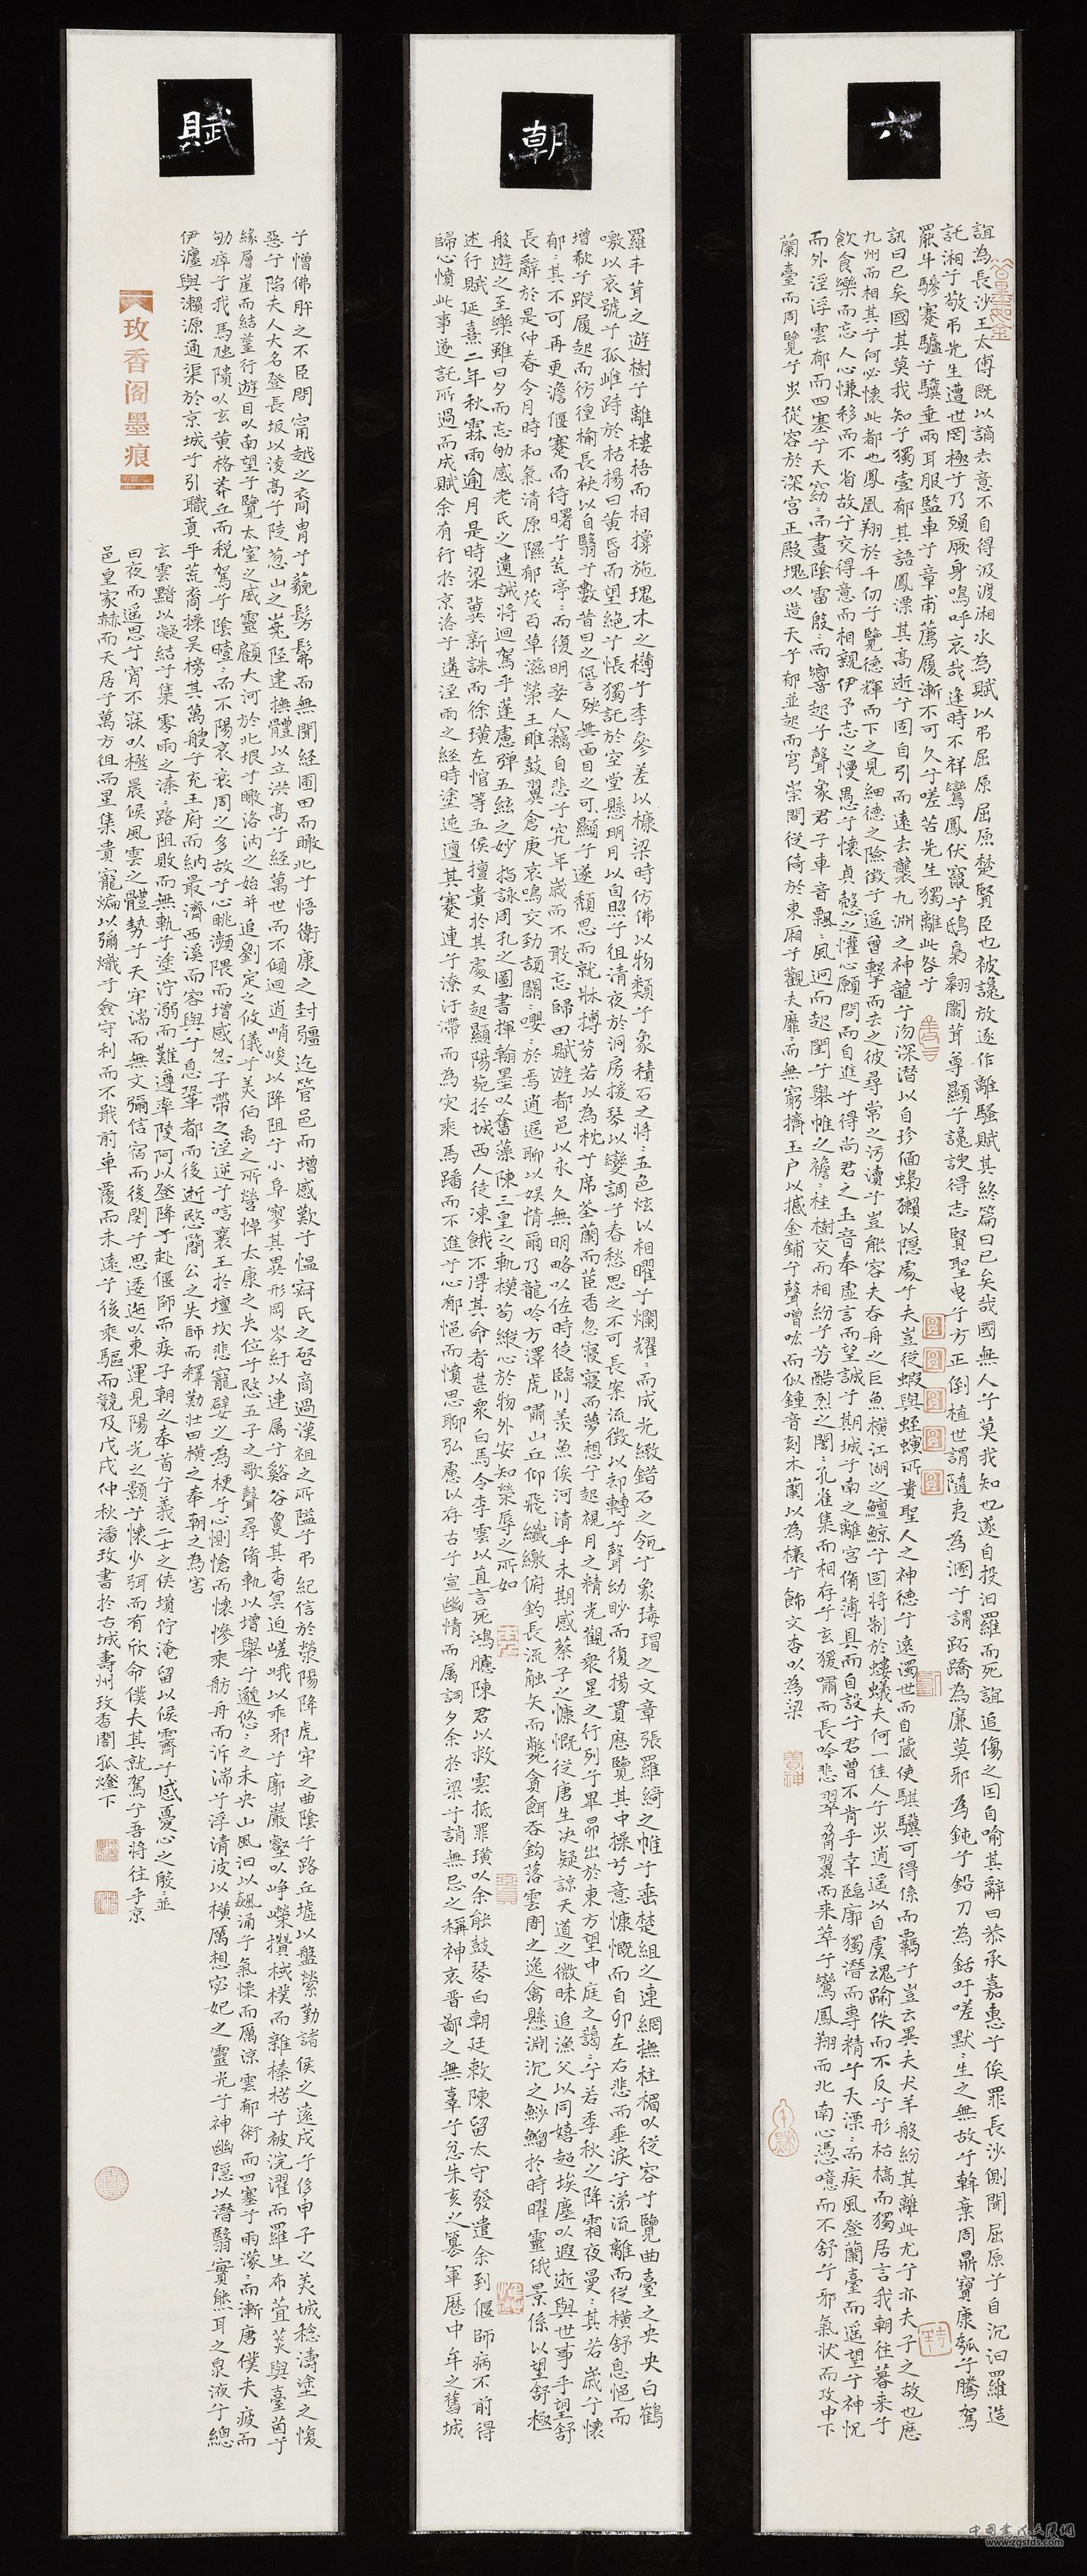 六
誼為長沙王太傅既以謫去意不自得汲渡湘水為賦以弔屈原屈原楚賢臣也被讒放逐作離騷賦其終篇曰已矣哉國無人兮莫我知也遂自投汨羅而死誼追傷之因自喻其辭曰恭承嘉惠兮俟罪長沙側聞屈原兮自沉汨羅造
託湘兮敬弔先生遭世罔極兮乃殞厥身嗚呼哀哉逢時不祥鸞鳳伏竄兮鴟梟翱闒茸尊顯兮讒諛得志賢聖曳兮方正倒植世謂隨夷為溷兮謂跖蹻為廉莫邪為鈍兮鉛刀為銛吁嗟默:生之無故兮斡棄周鼎寶康瓠兮騰駕
罷牛驂蹇驢兮驥垂兩耳服監車兮章甫薦履漸不可久兮嗟苦先生獨離此咎兮
訊曰已矣國其莫我知兮獨壹郁其語鳳漂其高逝兮固自引而遠去襲九淵之神龍兮沕深潛以自珍偭蟂獺以隱處兮夫豈從蝦與蛭螾所貴聖人之神德兮遠濁世而自藏使騏驥可得係而羈兮豈云異夫犬羊般紛其離此尤兮亦夫子之故也歷
九州而相其兮何必懷此都也鳳凰翔於千仞兮覽德輝而下之見細德之險徵兮遙曾擊而去之彼尋常之污瀆兮豈能容夫吞舟之巨魚橫江湖之鱣鯨兮固將制於螻蟻夫何一佳人兮步逍遙以自虞魂踰佚而不反兮形枯槁而獨居言我朝往暮来兮
飲食樂而忘人心慊移而不省故兮交得意而相親伊予志之慢愚兮懷貞慤之懽心願問而自進兮得尚君之玉音奉虛言而望誠兮期城兮南之離宮脩薄具而自設兮君曾不肯乎幸臨廓獨潛而專精兮天漂:而疾風登蘭臺而遥望兮神怳
而外淫浮雲郁而四塞兮天窈:而晝陰雷殷:而響起兮聲象君子車音飄:風迴而起閨兮舉帷之襜:桂樹交而相紛兮芳酷烈之誾:孔雀集而相存兮玄猨嘯而長吟悲翠脅翼而来萃兮鸞鳳翔而北南心憑噫而不舒兮邪氣状而攻中下
蘭臺而周覽兮步從容於深宮正殿塊以造天兮郁並起而穹崇間徙倚於東廂兮觀夫靡:而無窮擠玉户以撼金鋪兮聲噌吰而似鍾音刻木蘭以為榱兮飾文杏以為梁
朝
羅丰茸之遊樹兮離樓梧而相撐施瑰木之欂兮委參差以槺梁時仿佛以物類兮象積石之將:五色炫以相曜兮爛耀:而成光緻錯石之瓴兮象瑇瑁之文章張羅綺之帷兮垂楚組之連綱撫柱楣以從容兮覽曲臺之央央白鶴
噭以哀號兮孤雌跱於枯楊日黃昏而望絕兮悵獨託於空堂懸明月以自照兮徂清夜於洞房援琴以變調兮奏愁思之不可長案流徵以却轉兮聲幼眇而復揚貫歷覽其中操兮意慷慨而自卬左右悲而垂淚兮涕流離而從橫舒息悒而
增欷兮蹝履起而彷徨揄長袂以自翳兮數昔日之諐殃無面目之可顯兮遂頹思而就牀搏芬若以為枕兮席荃蘭而茝香忽寢寐而夢想兮魄若君之在旁惕寤覺而無見兮魂迋迋若有亡眾雞鳴而愁予兮起視月之精光觀眾星之行列兮畢昴出於東方望中庭之藹:兮若季秋之降霜夜曼:其若歲兮懷
郁:其不可再更澹偃蹇而待曙兮荒亭:而復明妾人竊自悲兮究年歲而不敢忘歸田賦遊都邑以永久無明略以佐時徒臨川羨魚俟河清乎未期感蔡子之慷慨從唐生決疑諒天道之微昧追漁父以同嬉超埃塵以遐逝與世事乎望舒
長辭於是仲春令月時和氣清原隰郁茂百草滋榮王雎鼓翼倉庚哀鳴交勁頡關:嚶:於焉逍遥聊以娛情爾乃龍吟方澤虎嘯山丘仰飛纖繳俯釣長流觸矢而斃貪餌吞鈎落雲間之逸禽懸淵沉之魦鰡於時曜靈俄景係以望舒極
般遊之至樂雖日夕而忘劬感老氏之遺誡將迴駕乎蓬廬彈五絃之妙指詠周孔之圖書揮翰墨以奮藻陳三皇之軌模苟縱心於物外安知榮辱之所如
述行賦延熹二年秋霖雨逾月是時梁冀新誅而徐璜左悺等五侯擅貴於其處又起顯陽苑於城西人徒凍餓不得其命者甚眾白馬令李雲以直言死鴻臚陳君以救雲抵罪璜以余能鼓琴白朝廷敕陳留太守發遣余到偃師病不前得
歸心憤此事遂託所過而成賦余有行於京洛兮遘淫雨之經時塗迍邅其蹇連兮潦汙滯而為災乘馬蹯而不進兮心郁悒而憤思聊弘慮以存古兮宣幽情而属詞夕余於梁兮誚無忌之稱神哀晋鄙之無辜兮忿朱亥之篡軍歷中牟之舊城
賦
兮憎佛肸之不臣問甯越之裔胄兮藐髣髴而無聞經圃田而瞰北兮悟衛康之封疆迄管邑而增感歎兮慍叔氏之啓商過漢祖之所隘兮弔紀信於滎陽降虎牢之曲陰兮路丘墟以盤縈勤諸侯之遠戍兮侈申子之美城稔濤塗之愎
惡兮陷夫人大名登長坂以淩高兮陟葱山之嶤陘建撫體以立洪高兮經萬世而不傾迴逍峭峻以降阻兮小阜寥其異形岡岑紆以連属兮谿谷敻其杳冥迫嵯峨以乖邪兮廓巖壑以崢嶸攢棫樸而雜榛楛兮被浣濯而羅生布薑菼與臺菌兮
緣層崖而結莖行遊目以南望兮覽太室之威靈顧大河於北垠兮瞰洛汭之始并追劉定之攸儀兮美伯禹之所營悼太康之失位兮愍五子之歌聲尋脩軌以增舉兮邈悠:之未央山風汩以飆涌兮氣慄而厲涼雲郁術而四塞兮雨濛:而漸唐僕夫疲而
劬瘁兮我馬虺隤以玄黃格莽丘而税駕兮陰曀:而不陽哀衰周之多故兮眺瀕隈而增感忿子帶之淫逆兮唁襄王於壇坎悲寵嬖之為梗兮心惻愴而懷慘乘舫舟而泝湍兮浮清波以橫厲想宓妃之靈光兮神幽隱以潛翳實熊耳之泉液兮總
伊瀍與瀨源通渠於京城兮引職貢乎荒裔操吴榜其萬艘兮充王府而納最濟西溪而容與兮息鞏都而後逝愍簡公之失師而釋勤壮田橫之奉朝之為害
玄雲黯以凝結兮集零雨之溱:路阻敗而無軌兮塗濘溺而難遵率陵阿以登降兮赴偃師而疾子朝之奉首兮義二士之俠墳佇淹留以候霽兮感憂心之殷:並
日夜而遥思兮宵不寐以極晨候風雲之體勢兮天牢湍而無文彌信宿而後闋兮思逶迤以東運見陽光之顥兮懷少弭而有欣命僕夫其就駕兮吾將往乎京
邑皇家赫而天居兮萬方徂而星集貴寵煽以彌熾兮僉守利而不戢前車覆而未遠兮後乘驅而競及戊戌仲秋潘玫書於古城壽州玫香閣孤燈下
玫香阁墨痕
www.zgsfds.com